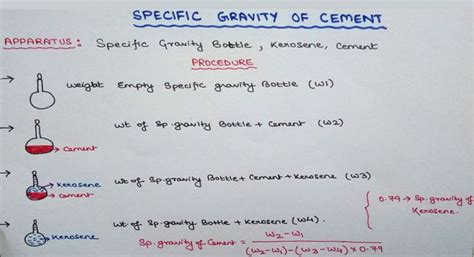 SPECIFIC GRAVITY OF CEMENT
APPARATUS : Specific Gravity Bottle , Kerosene, Cement
PROCEDURE
→ weight Empty Specific gravity Bottle (W1)
→ wt of Sp.gravity Bottle + Cement (W2)
→ Cement
→ wt of Sp.gravity Bottle + Cement + Kerosene (W3)
→ Kerosene
→ Cement
0.79 → Sp.gravity of Kerosene.
→ wt of Sp.gravity Bottle + Kerosene (W4).
→ Kerosene
Sp.gravity of Cement = W2 - W1
(W2-W1) - (W3-W4) × 0.79